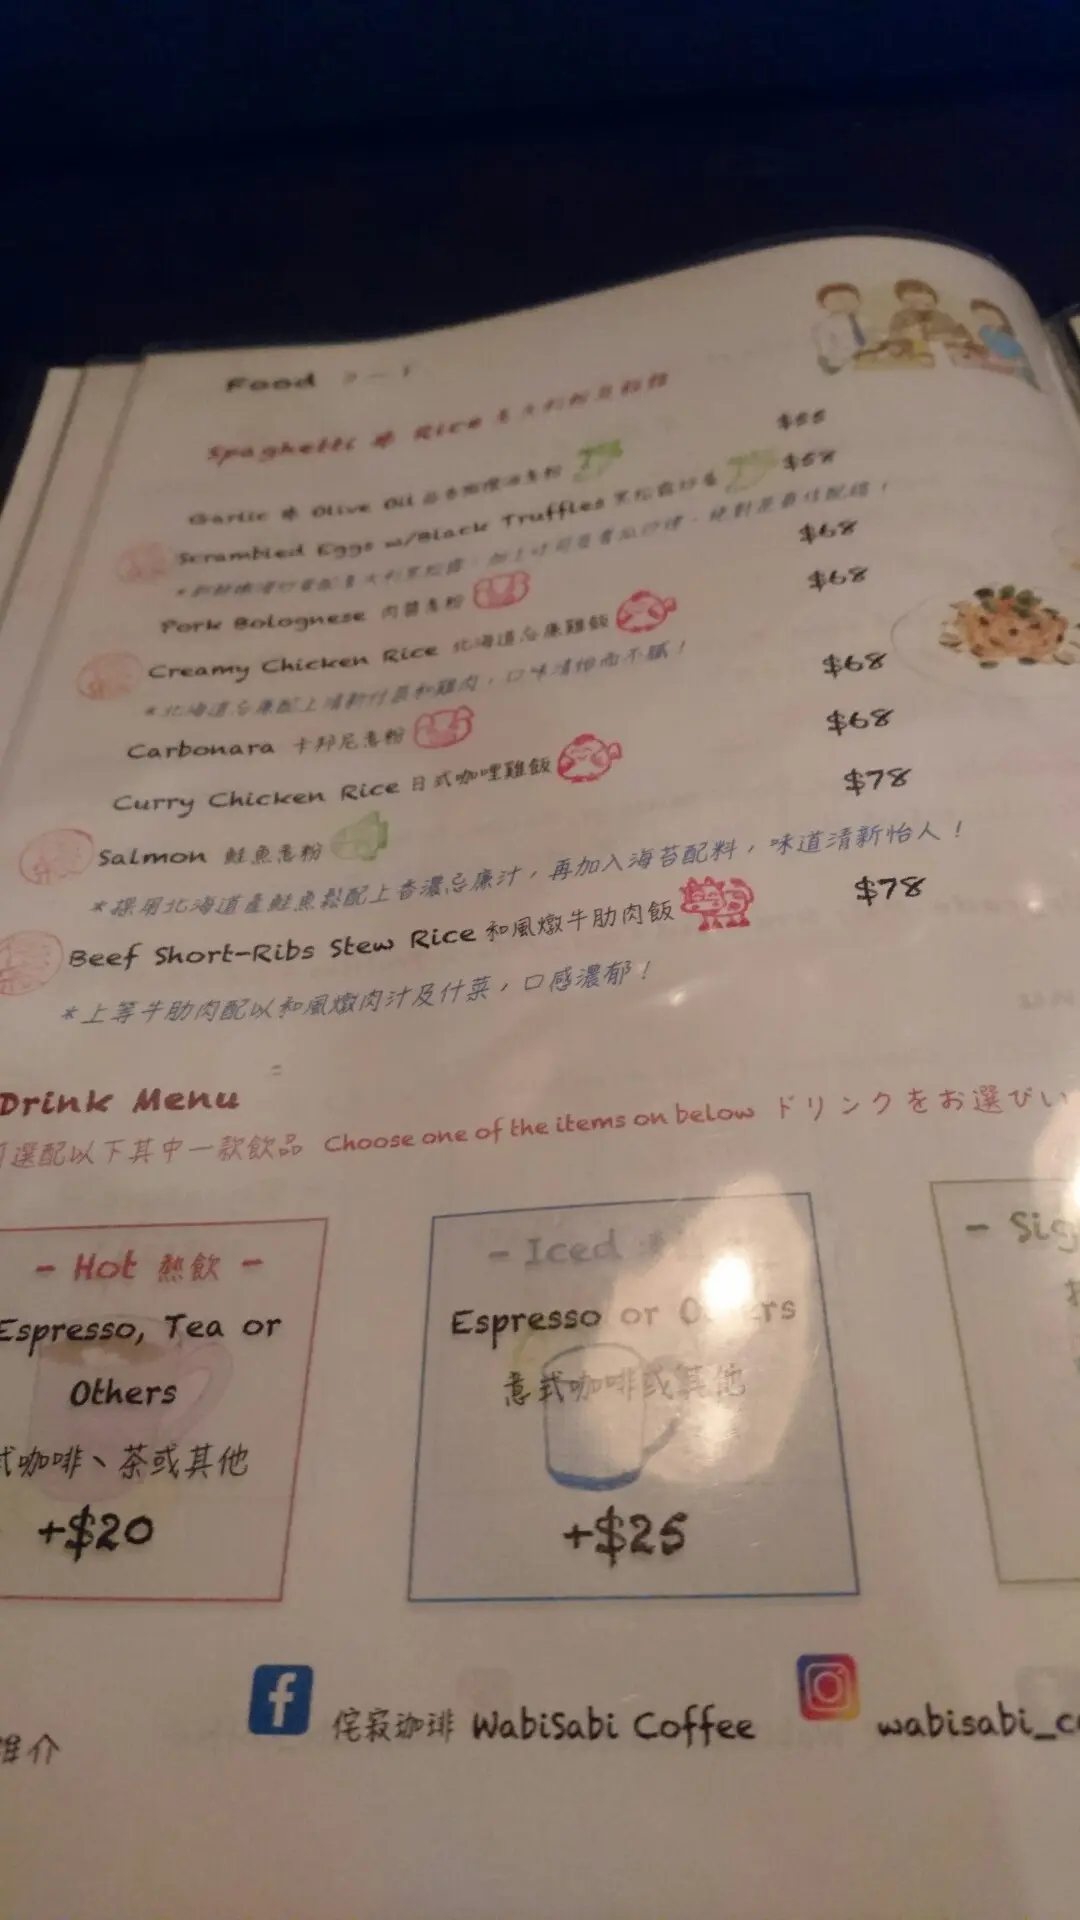 Food
Spaghetti & Rice
Garlic & Olive Oil $55
Scrambled Eggs w/Black Truffles 黑松露炒蛋 $58
Pork Bolognese 肉醬意粉 $68
Creamy Chicken Rice 北海道忌廉雞飯 $68
*北海道忌廉配上清新什菌和雞肉，口味清怡而不膩！
Carbonara 卡邦尼意粉 $68
Curry Chicken Rice 日式咖哩雞飯 $68
Salmon 鮭魚意粉 $78
*採用北海道產鮭魚鬆配上香濃忌廉汁，再加入海苔配料，味道清新怡人！
Beef Short-Ribs Stew Rice 和風燉牛肋肉飯 $78
*上等牛肋肉配以和風燉肉汁及什菜，口感濃郁！
Drink Menu
選配以下其中一款飲品 Choose one of the items on below ドリンクをお選びい
- Hot 熱飲 -
Espresso, Tea or
Others
式咖啡、茶或其他
+$20
- Iced
Espresso or Others
意式咖啡或其他
+$25
- Sig
侘寂咖啡 WabiSabi Coffee
wabisabi_c
推介